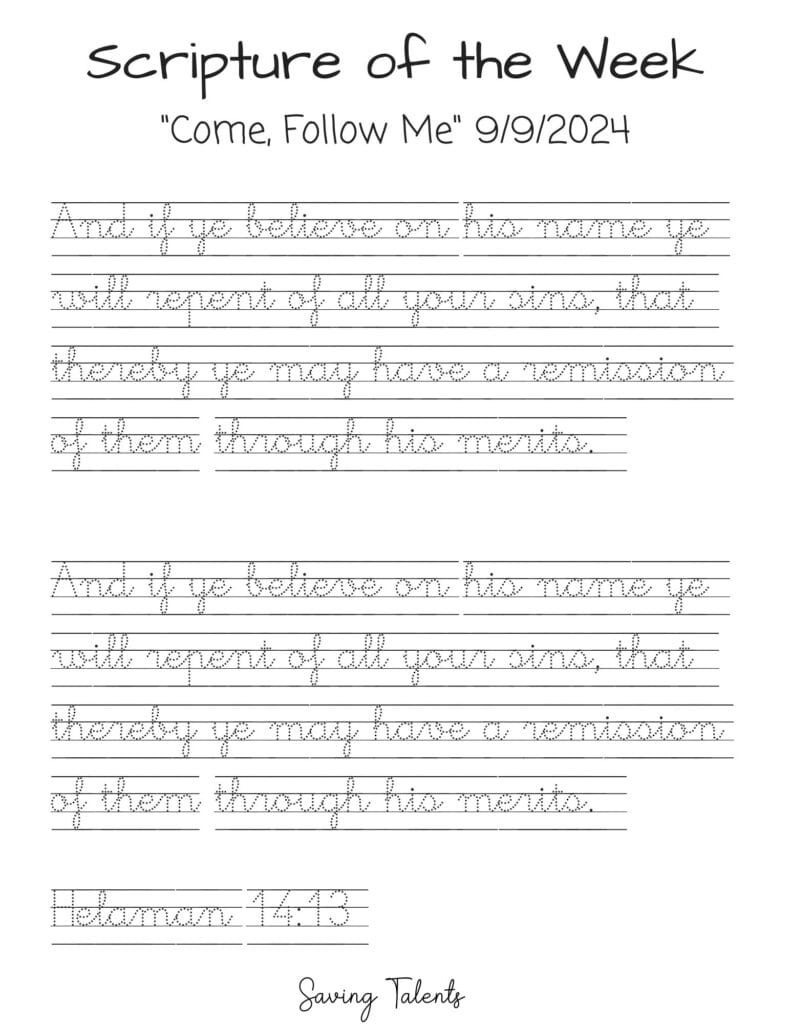 Scripture of the Week
"Come, Follow Me" 9/9/2024
And if ye believe on his name ye
will repent of all your sins, that
thereby ye may have a remission
of them through his merits.
And if ye believe on his name ye
will repent of all your sins, that
thereby ye may have a remission
of them through his merits.
Helaman 14:13
Saving Talents